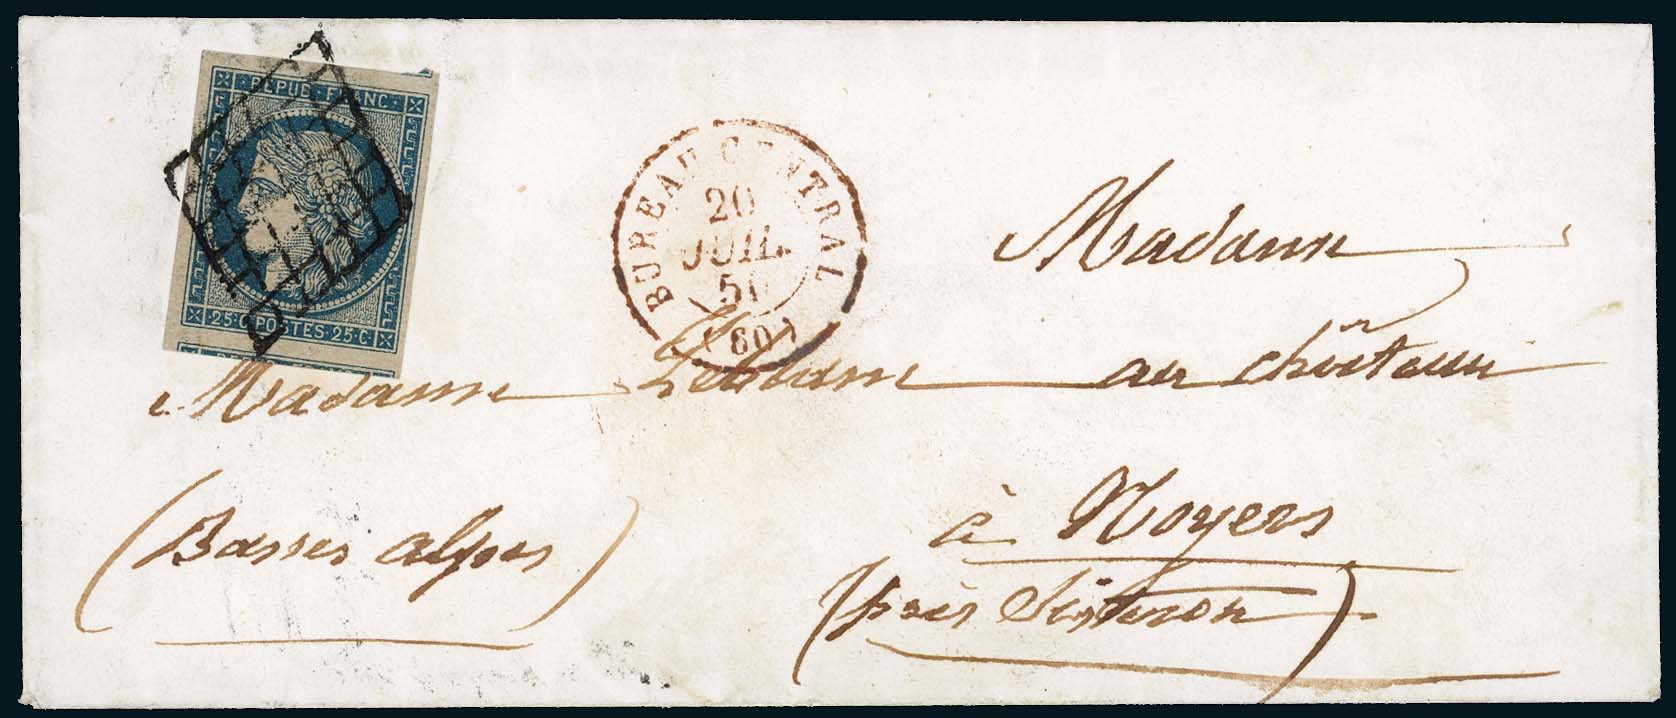 REPUB · FRANC
25 · C POSTES · 25 · C ·
BUREAU CENTRAL
20
JUIL.
50
(60)
Madame
Madame au château
à Noyers
(près Sisteron)
(Basses alpes)